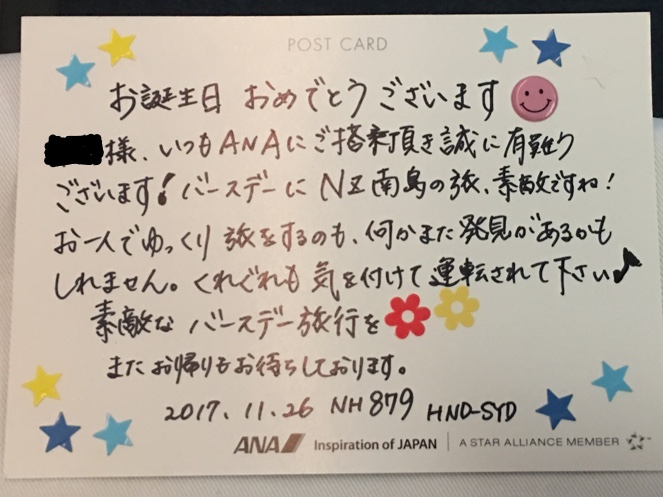 POST CARD
お誕生日 おめでとうございます
様、いつもANAにご搭乗頂き誠に有難う
ございます！バースデーにNZ南島の旅、素敵ですね！
お一人でゆっくり旅をするのも、何かまた発見があるかも
しれません。くれぐれも気を付けて運転されて下さい♪
素敵な バースデー旅行を
またお帰りもお待ちしております。
2017.11.26 NH879 HND-SYD
ANA Inspiration of JAPAN | A STAR ALLIANCE MEMBER